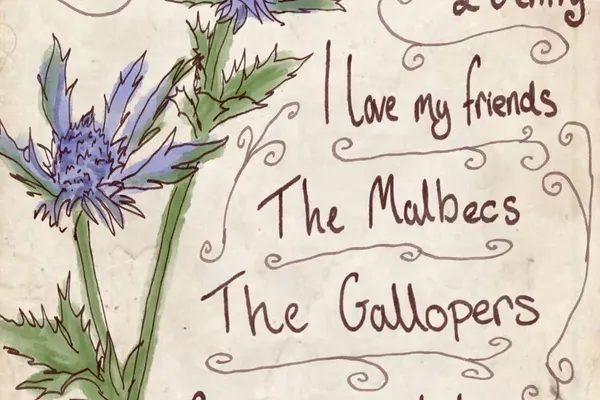 I love my friends
The Malbecs
The Gallopers